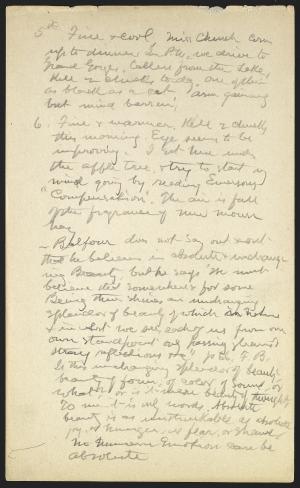 5th Fine & cool, Miss Church comes
up to dinner. In P.M. we drive to
Grand Gorge. Callers from the Lake,
Still & cloudy to-day
as black as a cat. Am gaining
but mind barren.
6. Fine & warmer. Still & cloudy
this morning. Eye seems to be
improving. I sit here under
the apple tree, & try to start my
mind going by reading Emerson's
"Compensation". The air is full
of the fragrance of new mown
hay.
— Balfour does not say out & out
that he believes in absolute & unchang-
ing Beauty, but he says "We must
believe that somewhere & for some
Being there shines an unchanging
splendor of beauty of which
& in what we see, each of us from our
own standpoint only passing gleams &
stray reflections". F. B.
Is this unchanging splendor of beauty,
beauty of form, of color, of sound, or
what? or is it beauty of thought?
To me it is only words. Absolute
beauty is as unthinkable as absolute
joy, or hunger, or fear, or
No human Emotion can be
absolute